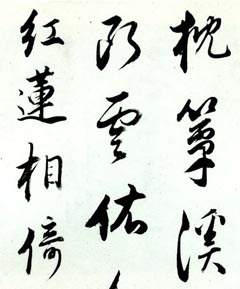 枕簟溪
断雲依
紅蓮相倚